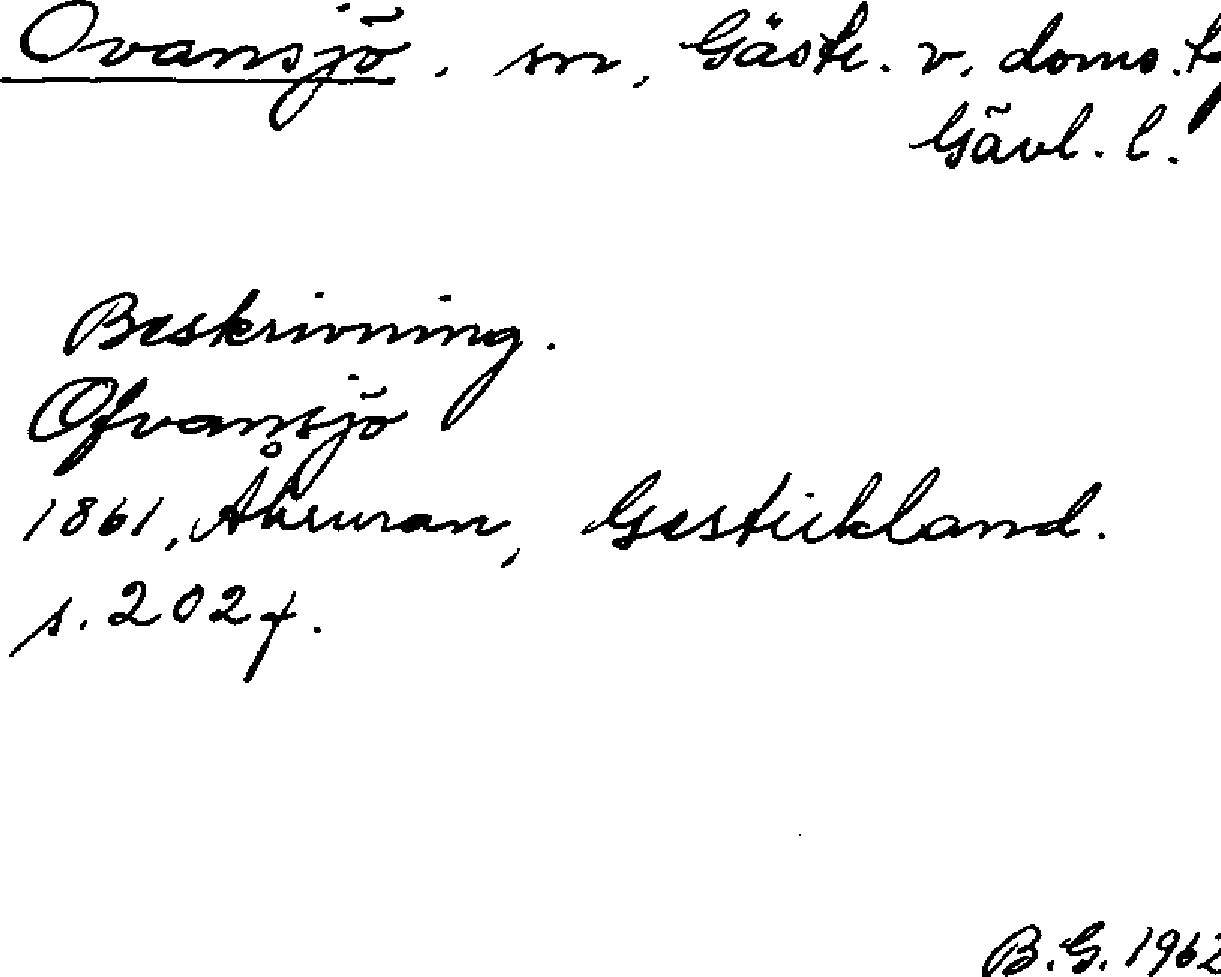 Ovansjö. sn, Gästr. v. doms. t
Gävl. l.
Beskrivning.
Ofvansjö
1861, Åkruran, Gestrikland.
s. 202 f.
B.G. 1962